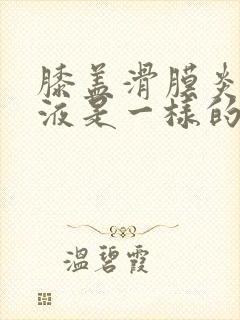 膝盖滑膜炎
液是一样的
温碧霞